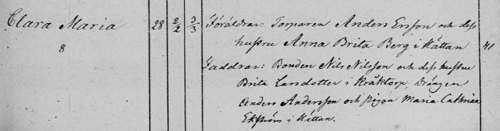 Clara Maria 28 2/2 3/3 Föräldrar: Torparen Anders Ersson och dess
8 hustru Anna Brita Berg i Kättan 41
Faddrar: Bonden Nils Nilsson och dess hustru
Brita Larsdotter i Kräktorp, Drängen
Anders Andersson och pigan Maria Cathrina
Ekström i Kättan.